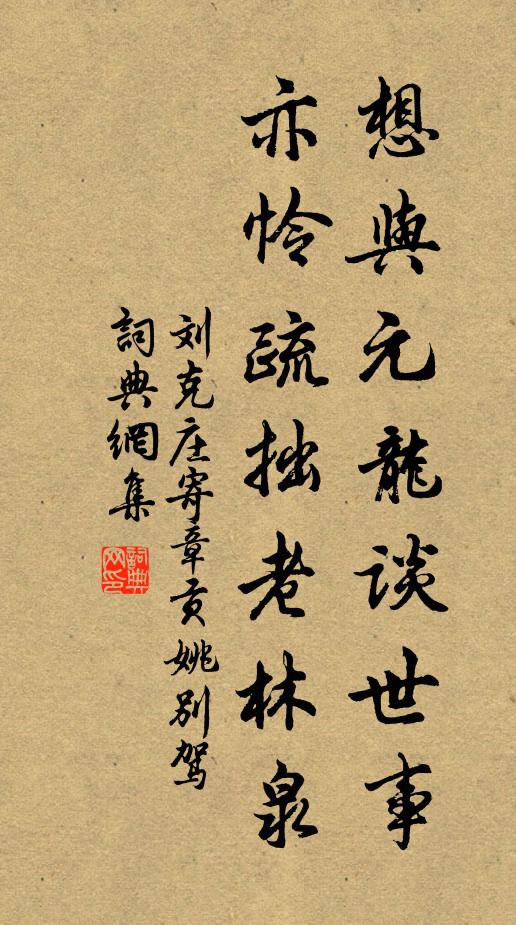 想與元龍談世事
亦怜疏拙老林泉
刘克庄寄章贡姚别驾
詞典網集
詞典网印